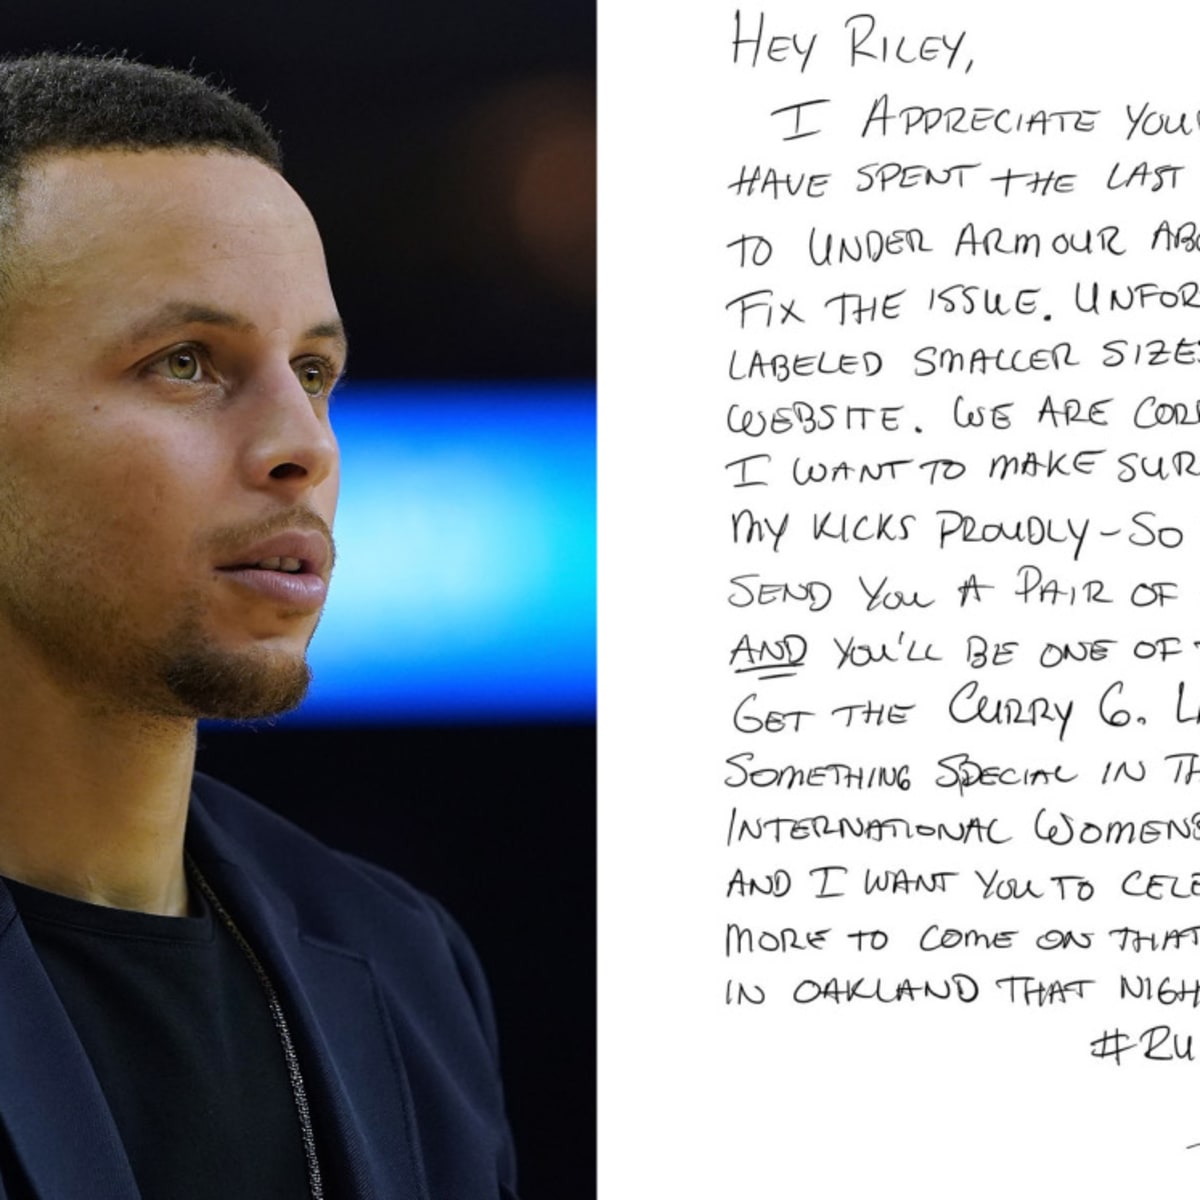 HEY RILEY,
I APPRECIATE YOU
HAVE SPENT THE LAST
TO UNDER ARMOUR
FIX THE ISSUE.
LABELED SMALLER SIZES
WEBSITE. WE ARE
I WANT TO MAKE
MY KICKS PROUDLY - SO
SEND YOU A PAIR OF
AND YOU'LL BE ONE OF
GET THE CURRY 6.
SOMETHING SPECIAL IN
INTERNATIONAL WOMENS
AND I WANT YOU TO
MORE TO COME ON THAT
IN OAKLAND THAT